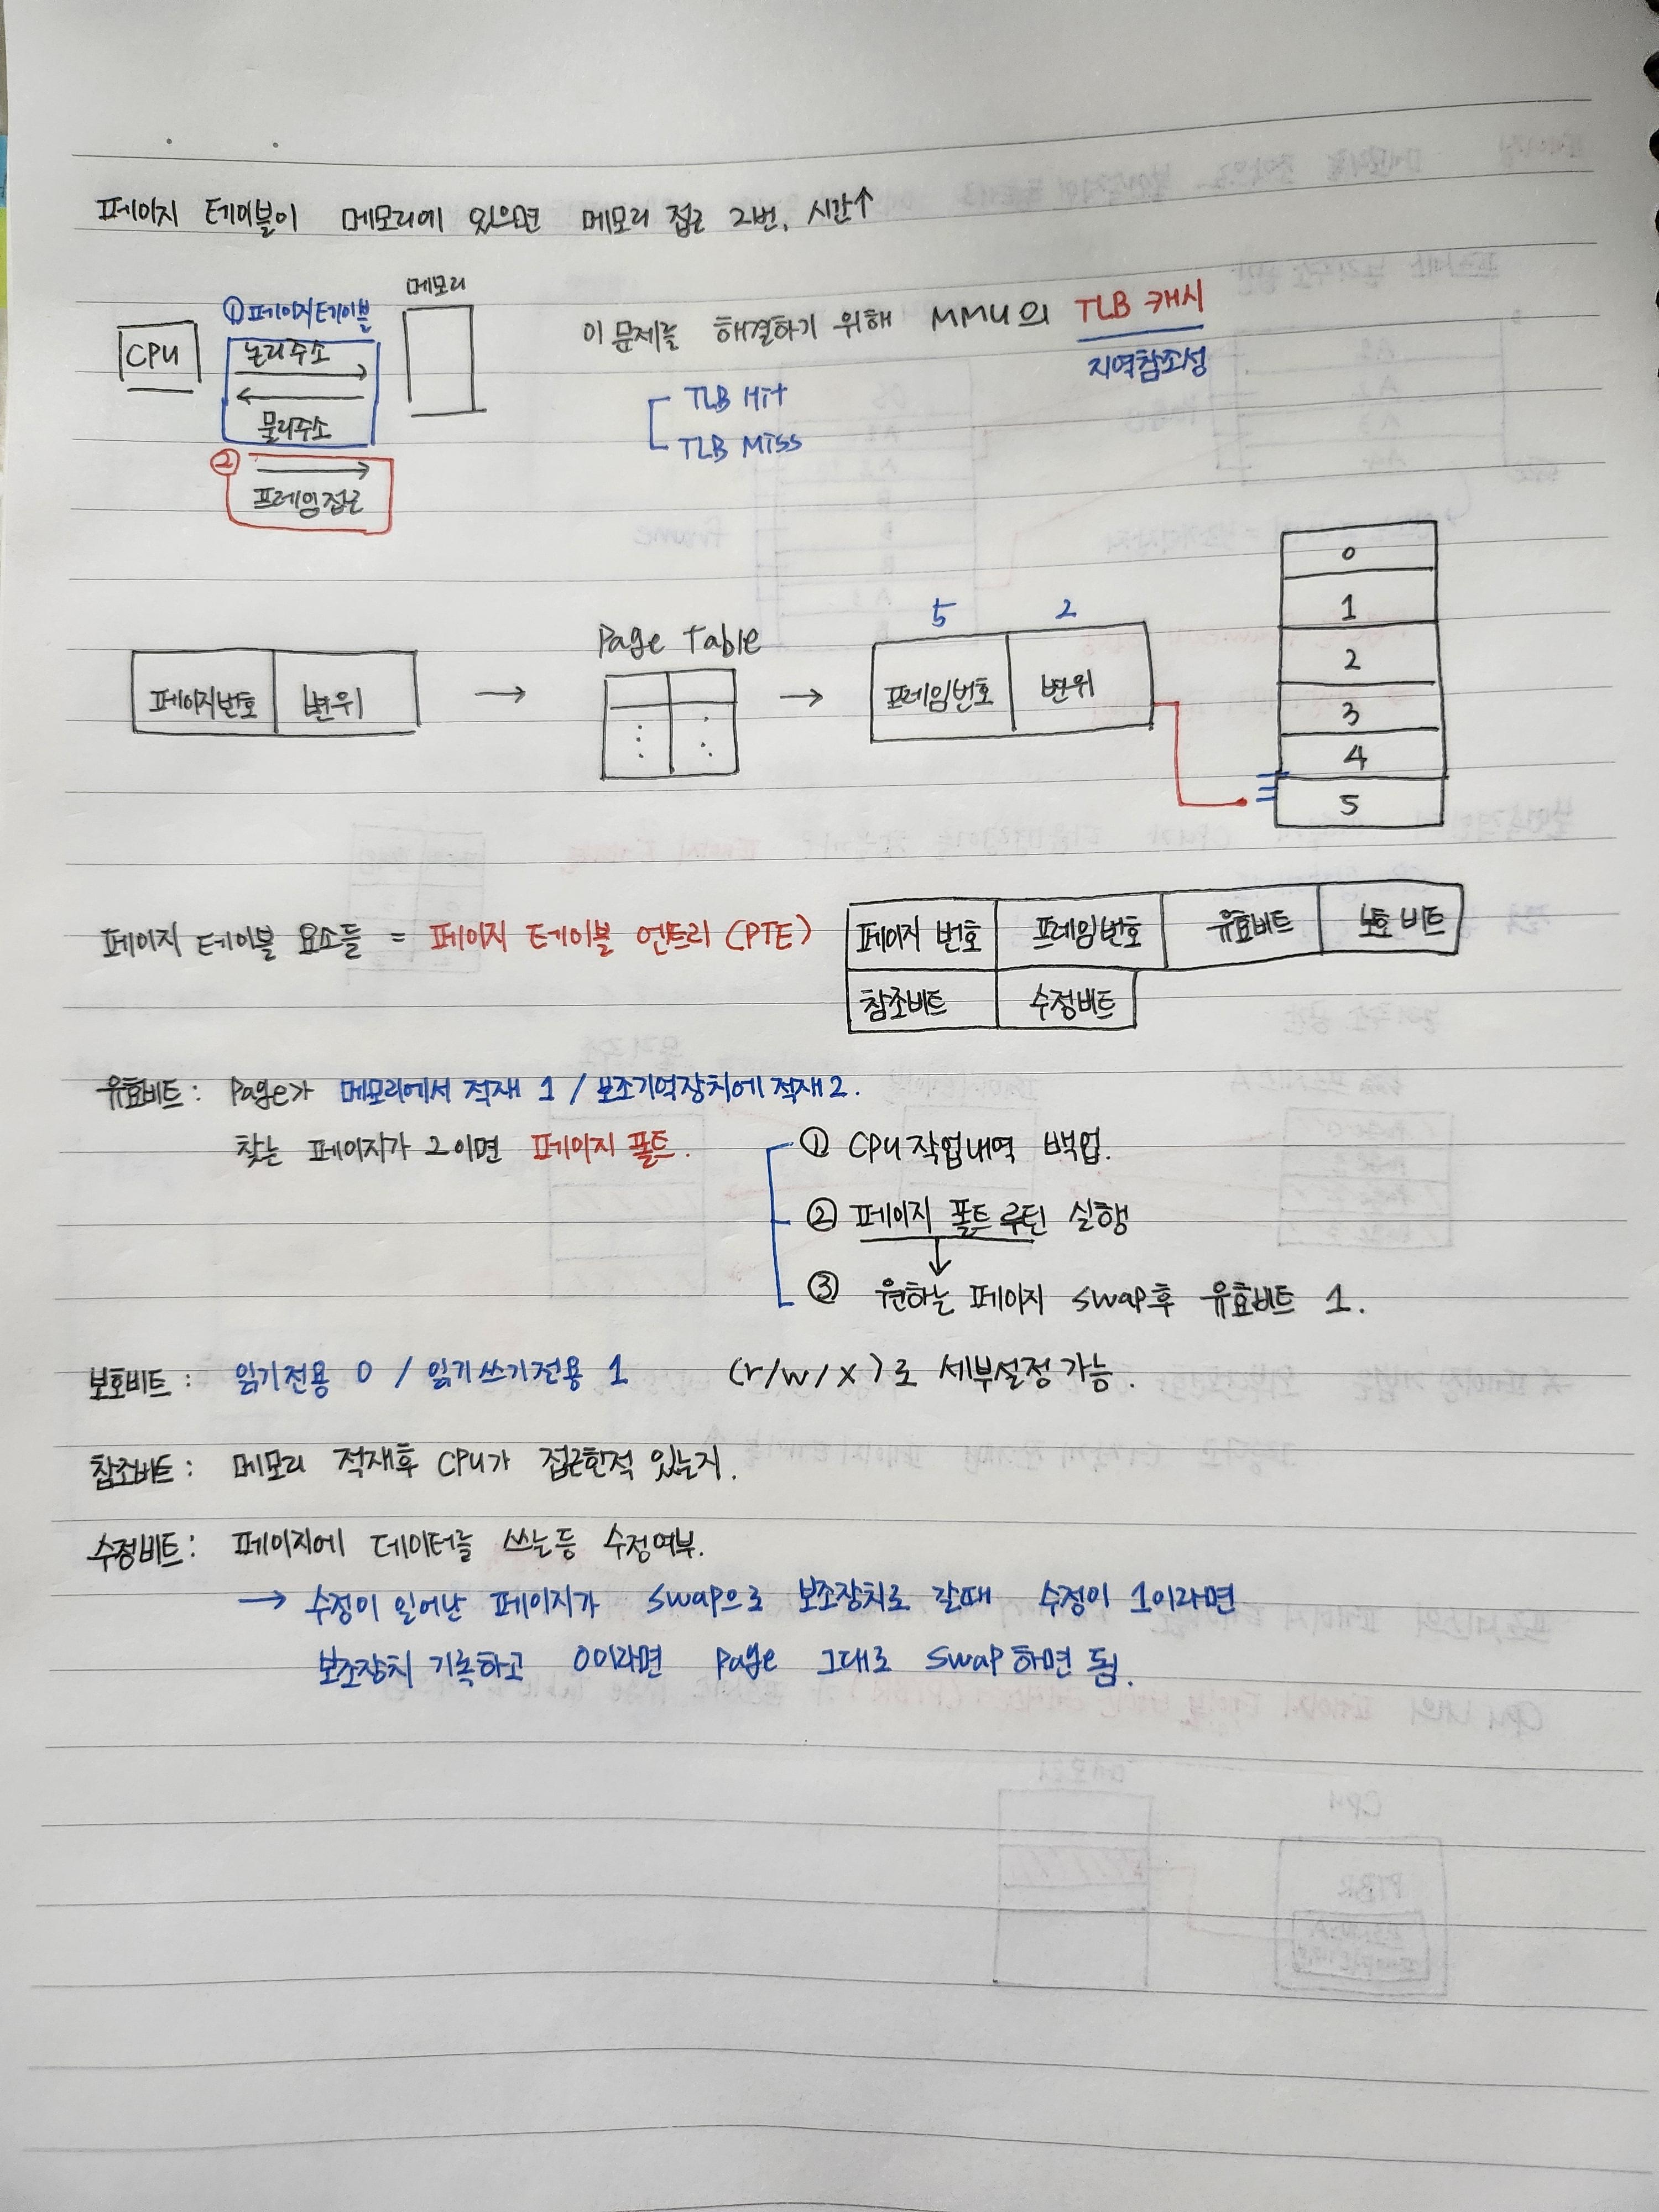 페이지 테이블이 메모리에 있으면 메모리 접근 2번, 시간↑
메모리
①페이지테이블
CPU
논리주소
물리주소
②
프레임접근
이 문제를 해결하기 위해 MMU의 TLB 캐시
지역참조성
TLB Hit
TLB Miss
페이지번호 변위
→
Page Table
→
5 2
프레임번호 변위
0
1
2
3
4
5
페이지 테이블 요소들 = 페이지 테이블 엔트리 (PTE)
페이지 번호 프레임번호 유효비트 보호비트
참조비트 수정비트
유효비트 : Page가 메모리에서 적재 1 / 보조기억장치에 적재 2.
찾는 페이지가 2이면 페이지 폴트.
① CPU 작업내역 백업.
② 페이지 폴트 루틴 실행
③ 원하는 페이지 swap후 유효비트 1.
보호비트 : 읽기전용 0 / 읽기쓰기전용 1 (r/w/x)로 세부설정 가능.
참조비트 : 메모리 적재후 CPU가 접근한적 있는지.
수정비트 : 페이지에 데이터를 쓰는등 수정여부.
→ 수정이 일어난 페이지가 swap으로 보조장치로 갈때 수정이 1이라면
보조장치 기록하고 0이라면 page 그대로 swap하면 됨.